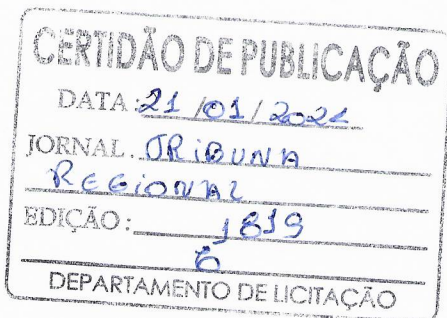 CERTIDÃO DE PUBLICAÇÃO
DATA: 21/01/2021
JORNAL. TRIBUNA
REGIONAL
EDIÇÃO: 1819
6
DEPARTAMENTO DE LICITAÇÃO